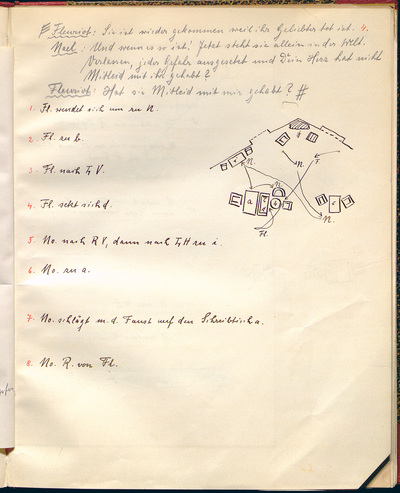 Fleuriot: Sie ist wieder gekommen weil ihr Geliebter tot ist. 4.
Noel: Und wenn es so ist! Jetzt steht sie allein in der Welt.
Verlassen, jeder Gefahr ausgesetzt und Dein Herz hat nicht
Mitleid mit ihr gehabt?
Fleuriot: Hat sie Mitleid mit mir gehabt? #
1. Fl. wendet sich um zu N.
2. Fl. zu b.
3. Fl. nach V.
4. Fl. setzt sich d.
5. No. nach R V, dann nach H zu i.
6. No. zu a.
7. No. schlägt m. d. Faust auf den Schreibtisch a.
8. No. R. von Fl.
N. N. F.
a
N.
Fl.